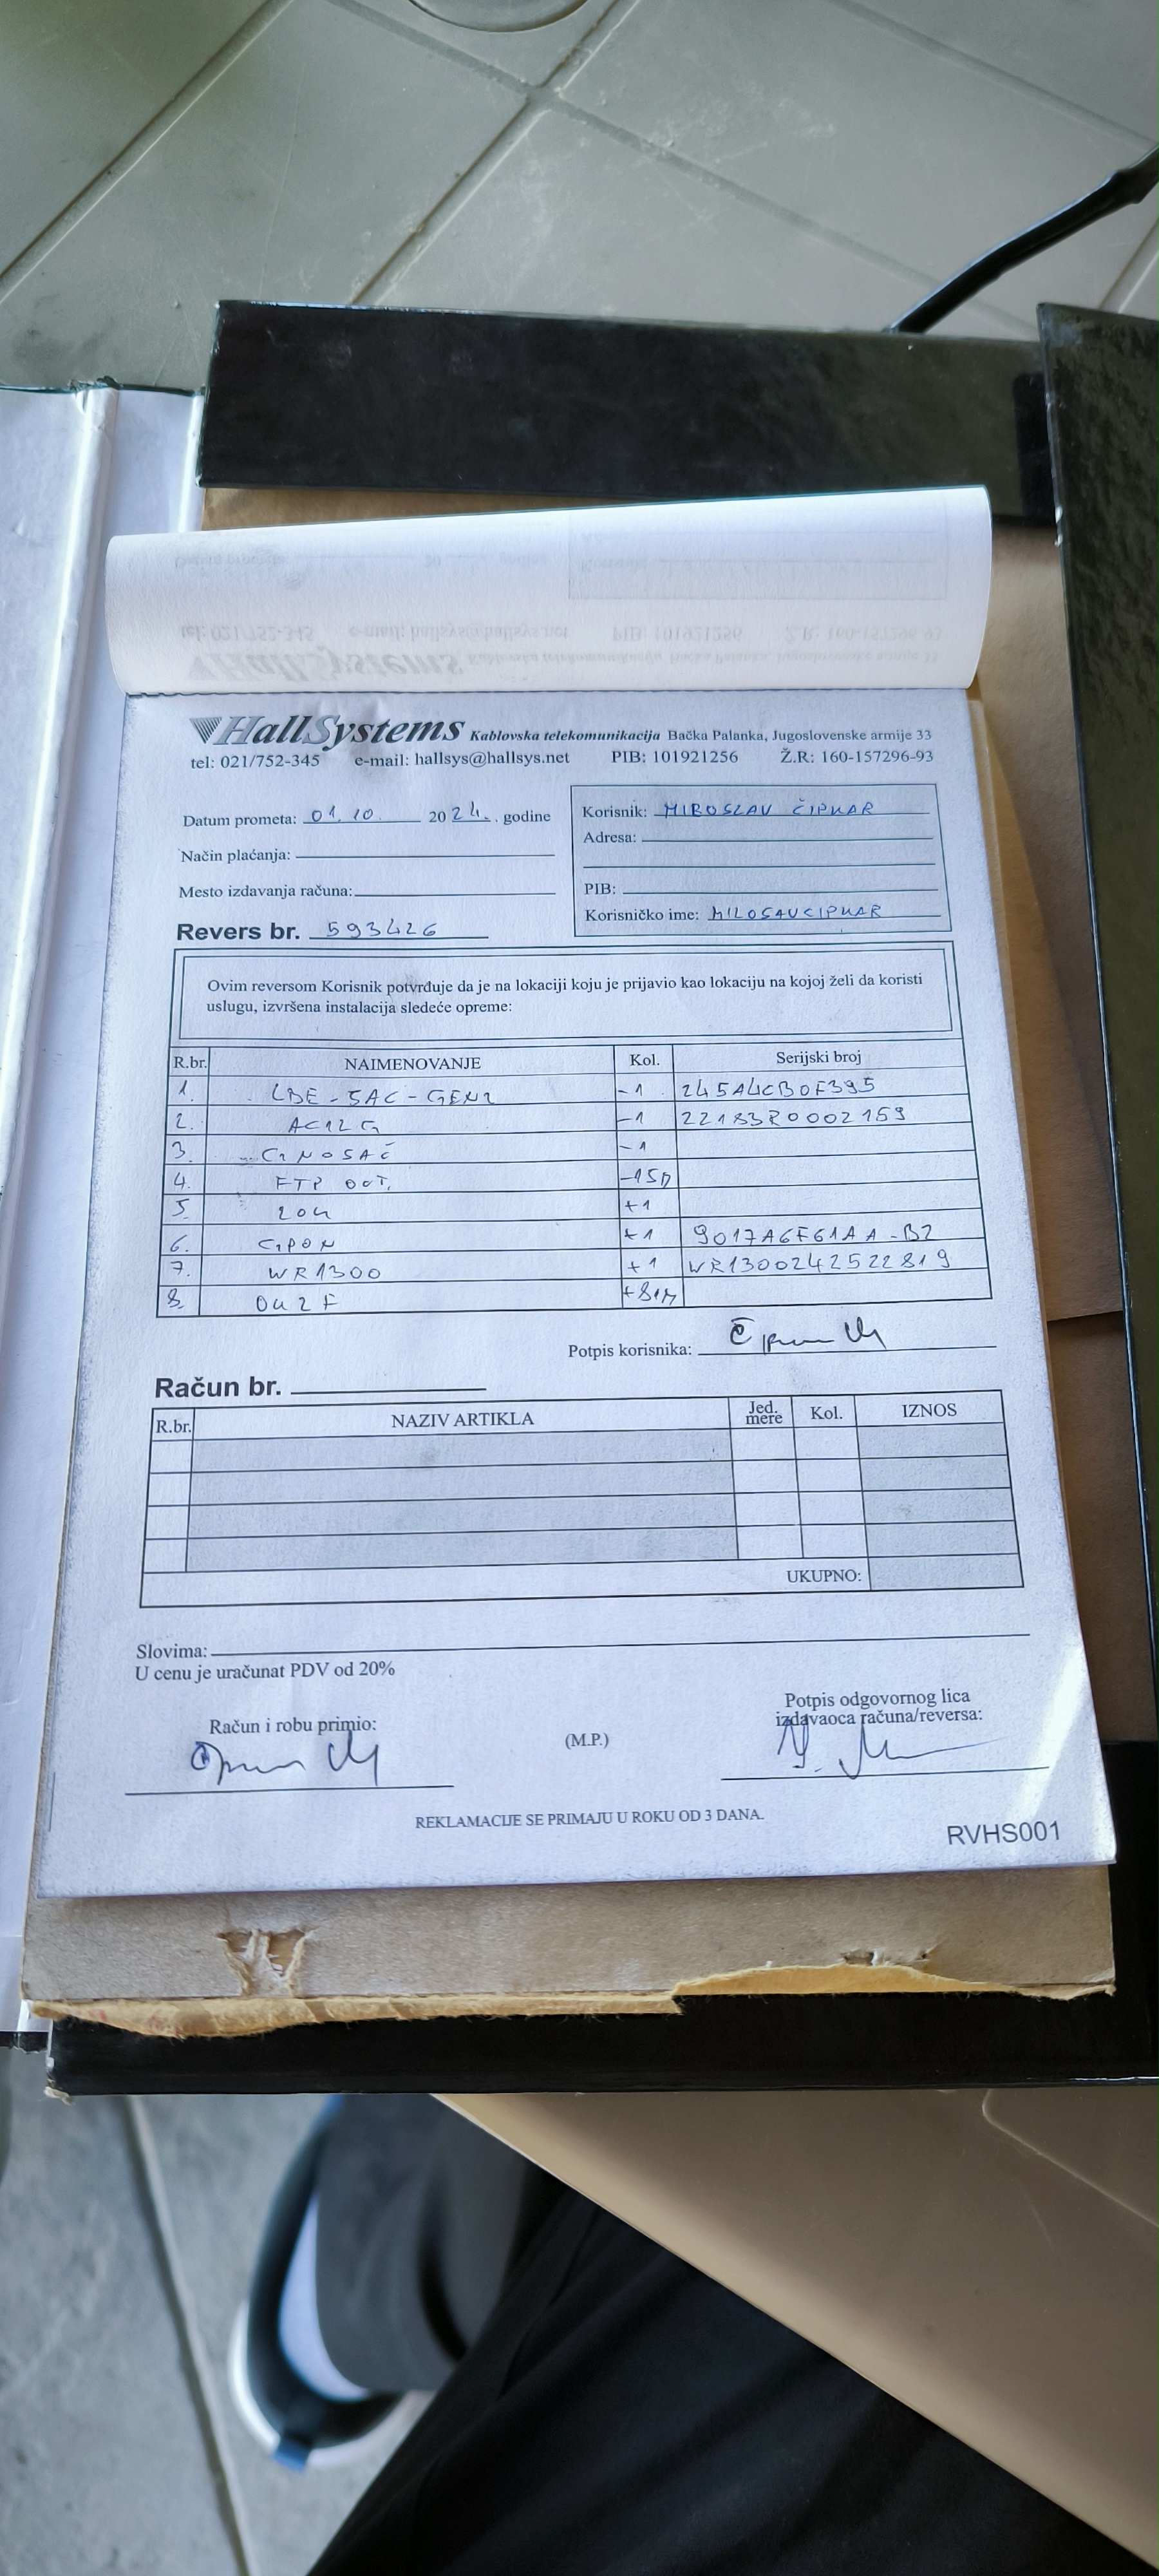 HallSystems Kablovska telekomunikacija Bačka Palanka, Jugoslovenske armije 33
tel: 021/752-345 e-mail: hallsys@hallsys.net PIB: 101921256 Ž.R: 160-157296-93
Datum prometa: 01.10. 2024. godine
Korisnik: MIROSLAV ČIPKAR
Način plaćanja:
Adresa:
Mesto izdavanja računa:
PIB:
Revers br. 593426
Korisničko ime: MILOSAVCIPKAR
Ovim reversom Korisnik potvrđuje da je na lokaciji koju je prijavio kao lokaciju na kojoj želi da koristi
uslugu, izvršena instalacija sledeće opreme:
R.br. NAIMENOVANJE Kol. Serijski broj
1. LBE-5AC-GEN2 -1 245A4CB0F395
2. AC12G -1 22183R0002159
3. G NOSAČ -1
4. FTP OUT. -15m
5. ZOK +1
6. GPON +1 9017A6F61AA-B2
7. WR1300 +1 WR1300242522819
8. OK2F +81m
Potpis korisnika:
Račun br.
R.br. NAZIV ARTIKLA Jed. mere Kol. IZNOS
UKUPNO:
Slovima:
U cenu je uračunat PDV od 20%
Račun i robu primio:
(M.P.)
Potpis odgovornog lica
izdavaoca računa/reversa:
REKLAMACIJE SE PRIMAJU U ROKU OD 3 DANA.
RVHS001